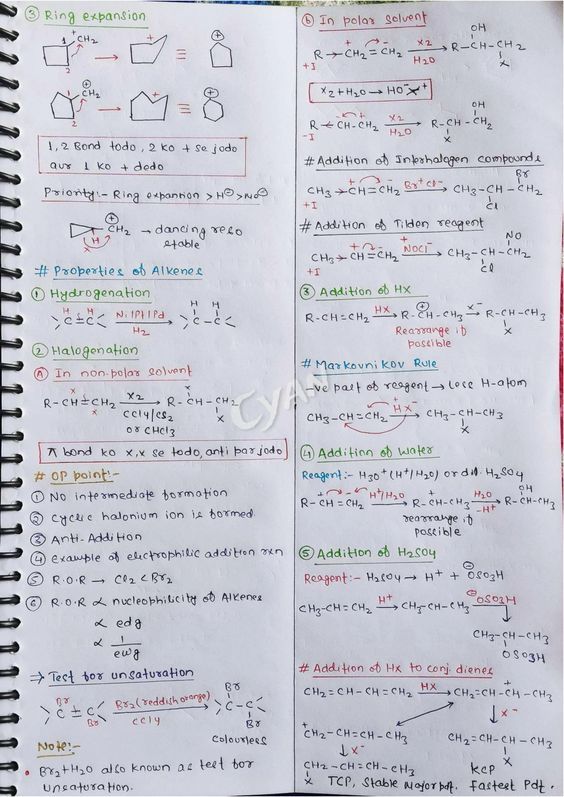 ③ Ring expansion
+ CH₂
1
2
≡
⊕ CH₂
1
2
≡
1,2 Bond todo, 2 ko + se jodo
aur 1 ko + dedo
Priority:- Ring expantion > H⊖ > No⊖
⊕
CH₂ → dancing reso
H
x
stable
# Properties of Alkenes
① Hydrogenation
H H
>C=C< Ni/Pt/Pd H₂ → >C-C<
H H
② Halogenation
Ⓐ In non-polar solvent
R-CH=CH₂ X₂ → R-CH-CH₂
x x
CCl₄/CS₂
or CHCl₃
X X
π bond ko x,x se todo, anti par jodo
# OP point:-
① NO intermediate formation
② Cyclic halonium ion is formed
③ Anti-Addition
④ Example of electrophilic addition rxn
⑤ R.O.R → Cl₂ < Br₂
⑥ R.O.R ∝ nucleophilicity of Alkenes
∝ edg
∝ 1/ewg
⇒ Test for unsaturation
Br Br
>C=C< Br₂ (reddish orange) → >C-C<
Br CCl₄ Br
colourless
Note:-
• Br₂+H₂O also known as test for
unsaturation.
ⓑ In polar solvent
OH
R→CH=CH₂ X₂ H₂O → R-CH-CH₂
+I + - X
X₂+H₂O → HO⁻X⁺
OH
R←CH=CH₂ X₂ H₂O → R-CH-CH₂
-I - + X
# Addition of Interhalogen compounds
Br
CH₃→CH=CH₂ Br⁺Cl⁻ → CH₃-CH-CH₂
+I + - Cl
# Addition of Tilden reagent
NO
CH₃→CH=CH₂ NOCl → CH₃-CH-CH₂
+I + - Cl
③ Addition of HX
R-CH=CH₂ HX → R-CH-CH₃ X⁻ → R-CH-CH₃
⊕ X
Rearrange if
possible
# Markovnikov Rule
-ve part of reagent → Less H-atom
CH₃-CH=CH₂ HX → CH₃-CH-CH₃
X
④ Addition of water
Reagent:- H₃O⁺ (H⁺/H₂O) or dil. H₂SO₄
OH
R-CH=CH₂ H⁺/H₂O → R-CH-CH₃ H₂O -H⁺ → R-CH-CH₃
+ - +
rearrange if
possible
⑤ Addition of H₂SO₄
Reagent:- H₂SO₄ → H⁺ + ⊖OSO₃H
CH₃-CH=CH₂ H⁺ → CH₃-CH-CH₃ ⊖OSO₃H
CH₃-CH-CH₃
OSO₃H
# Addition of HX to conj. dienes
CH₂=CH-CH=CH₂ HX → CH₂=CH-CH-CH₃
+
X⁻
+CH₂-CH=CH-CH₃ CH₂=CH-CH-CH₃
X⁻ X
CH₂-CH=CH-CH₃ KCP
X TCP, Stable Major pdt. fastest Pdt.
CYAN